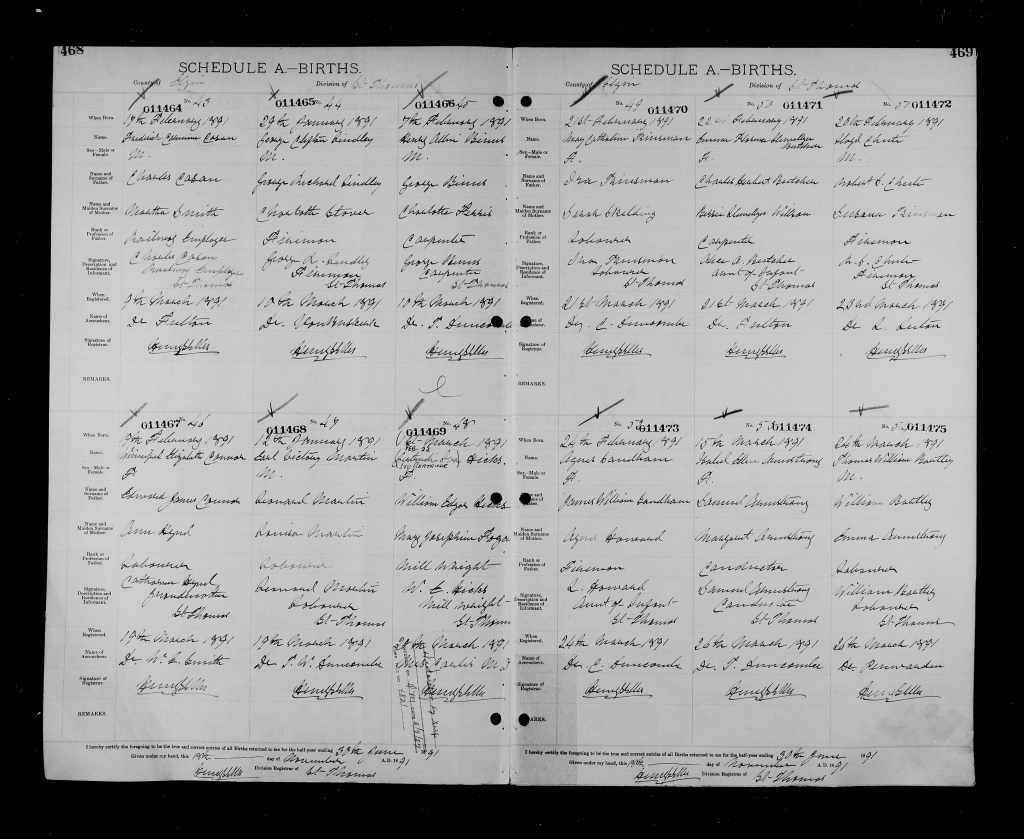 468
SCHEDULE A.—BIRTHS.
County of Elgin Division of St. Thomas
011464 No. 43 011465 No. 44 011466 No. 45
When Born. 17th February 1891 29th January 1891 7th February 1891
Name. George Lindley Henry Binns
Sex—Male or Female. M. M. M.
Name and Surname of Father. Charles George Richard Lindley George Binns
Name and Maiden Surname of Mother. Martha Smith Charlotte Charlotte
Rank or Profession of Father. Railway Employee Fireman Carpenter
Signature, Description and Residence of Informant. Charles George R. Lindley George Binns
Railway Employee Fireman Carpenter
St. Thomas St-Thomas St-Thomas
When Registered. 9th March 1891 10th March 1891 10th March 1891
Name of Accoucheur. Dr. Fulton Dr. Dr. T. Duncombe
Signature of Registrar.
REMARKS.
011467 No. 46 011468 No. 47 011469 No. 48
When Born. February 1891 12th January 1891 1st March 1891
FEB 22
Name. Winnifred Elizabeth Connor Earl Victory Martin Hicks
Sex—Male or Female. F M. F.
Name and Surname of Father. Edward James Connor Leonard Martin William Edgar Hicks
Name and Maiden Surname of Mother. Ann Louisa Martin Mary Josephine
Rank or Profession of Father. Labourer Labourer Mill Wright
Signature, Description and Residence of Informant. Catherine Leonard Martin W. E. Hicks
Grandmother Labourer Mill Wright
St-Thomas St-Thomas St-Thomas
When Registered. 19th March 1891 19th March 1891 20th March 1891
Name of Accoucheur. Dr. W. C. Smith Dr. T. W. Duncombe
Signature of Registrar.
REMARKS.
I hereby certify the foregoing to be the true and correct entries of all Births returned to me for the half-year ending 30th June 1891
Given under my hand, this 19th day of November A.D. 1891
Division Registrar of St-Thomas
469
SCHEDULE A.—BIRTHS.
County of Elgin Division of St-Thomas
No. 49 011470 No. 50 011471 No. 51 011472
When Born. 21st February 1891 22nd February 1891 20th February 1891
Name. Mary Kinsman Emma Lloyd Chute
Sex—Male or Female. F. F. M.
Name and Surname of Father. Ira Kinsman Charles Herbert Robert E. Chute
Name and Maiden Surname of Mother. Sarah Skelding Wilson Susana Kinsman
Rank or Profession of Father. Labourer Carpenter Fireman
Signature, Description and Residence of Informant. Ira Kinsman Chute
Labourer Aunt of Infant Fireman
St-Thomas St-Thomas St-Thomas
When Registered. 21st March 1891 21st March 1891 23rd March 1891
Name of Accoucheur. Dr. C. Duncombe Dr. Fulton Dr. L. Luton
Signature of Registrar.
REMARKS.
No. 52 011473 No. 53 011474 No. 54 011475
When Born. 24th February 1891 15th March 1891 24th March 1891
Name. Agnes Sandham Isabel Ellen Armstrong Thomas William Bartley
Sex—Male or Female. F. F. M.
Name and Surname of Father. James William Sandham Samuel Armstrong William Bartley
Name and Maiden Surname of Mother. Agnes Howard Margaret Armstrong Emma Armstrong
Rank or Profession of Father. Fireman Conductor Labourer
Signature, Description and Residence of Informant. L. Howard Samuel Armstrong William Bartley
Aunt of Infant Conductor Labourer
St-Thomas St-Thomas St-Thomas
When Registered. 24th March 1891 26th March 1891 26th March 1891
Name of Accoucheur. Dr. C. Duncombe Dr. T. Duncombe Dr. Penwarden
Signature of Registrar.
REMARKS.
I hereby certify the foregoing to be the true and correct entries of all Births returned to me for the half-year ending 30th June 1891
Given under my hand, this 19th day of November A.D. 1891
Division Registrar of St-Thomas